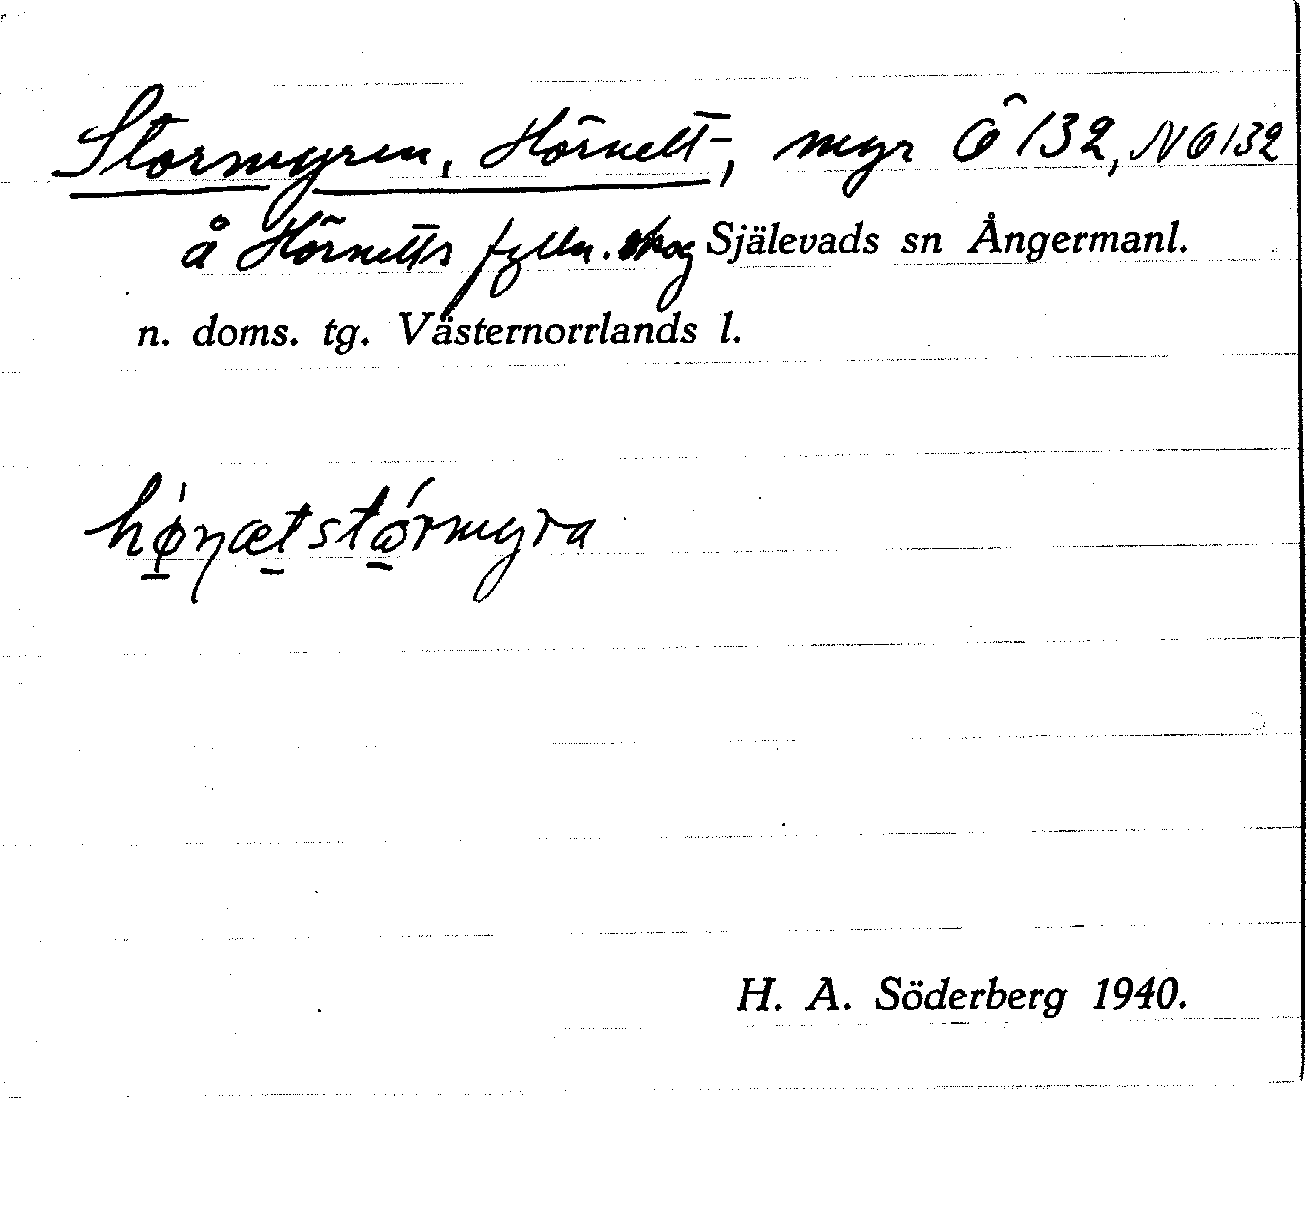 Stormyren, Hörnett-, myr Ö 132, NÖ 132
å Hörnetts Själevads sn Ångermanl.
n. doms. tg. Västernorrlands l.
hø̱ŋæṯstǫ́rmyra
H. A. Söderberg 1940.